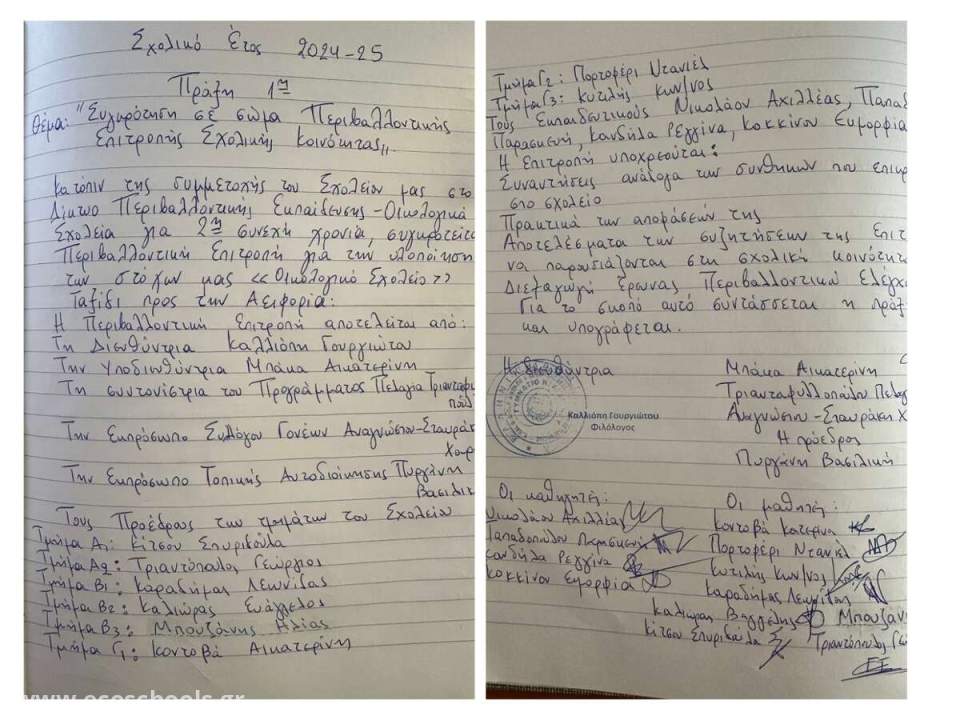 Σχολικό Έτος 2024-25
Πράξη 1η
Θέμα: "Συγκρότηση σε σώμα Περιβαλλοντικής
Επιτροπής Σχολικής Κοινότητας"
Κατόπιν της συμμετοχής του Σχολείου μας στο
Δίκτυο Περιβαλλοντικής Εκπαίδευσης-Οικολογικά
Σχολεία για 2η συνεχή χρονιά, συγκροτείται
Περιβαλλοντική Επιτροπή για την υλοποίηση
των στόχων μας << Οικολογικό Σχολείο>>
Ταξίδι προς την Αειφορία:
Η Περιβαλλοντική Επιτροπή αποτελείται από:
Τη Διευθύντρια Καλλιόπη Γουργιώτου
Την Υποδιευθύντρια Μπάκα Αικατερίνη
Τη συντονίστρια του Προγράμματος Πελαγία Τριανταφυ
πούλ
Την Εκπρόσωπο Συλλόγου Γονέων Αναγνώστου-Σταυράκ
Χαρ
Την Εκπρόσωπο Τοπικής Αυτοδιοίκησης Πυργάνη
Βασιλικ
Τους Προέδρους των τμημάτων του Σχολείου
Τμήμα Α1: Κίτσου Σπυριδούλα
Τμήμα Α2: Τριαντόπουλος Γεώργιος
Τμήμα Β1: Καραδήμας Λεωνίδας
Τμήμα Β2: Καλιώρας Ευάγγελος
Τμήμα Β3: Μπουζάνης Ηλίας
Τμήμα Γ1: Κοντοβά Αικατερίνη
www.ecoschools.gr
Τμήμα Γ2: Πορτοφέρι Ντανιέλ
Τμήμα Γ3: Κυτιλής Κων/νος
Τους Εκπαιδευτικούς Νικολάου Αχιλλέας, Παπαδ
Παρασκευή, Κανδύλα Ρεγγίνα, Κοκκίνου Ευμορφία
Η Επιτροπή υποχρεούται:
Συναντήσεις ανάλογα των συνθηκών που επικρ
στο σχολείο
Πρακτικά των αποφάσεών της
Αποτελέσματα των συζητήσεων της Επιτ
να παρουσιάζονται στη σχολική κοινότητ
Διεξαγωγή έρευνας Περιβαλλοντικού Ελέγχο
Για το σκοπό αυτό συντάσσεται η πράξ
και υπογράφεται.
Η Διευθύντρια
Καλλιόπη Γουργιώτου
Φιλόλογος
Μπάκα Αικατερίνη
Τριανταφυλλοπούλου Πελαγ
Αναγνώστου-Σταυράκη Χ
Η πρόεδρος
Πυργάνη Βασιλική
Οι καθηγητές:
Νικολάου Αχιλλέας
Παπαδοπούλου Παρασκευή
Κανδύλα Ρεγγίνα
Κοκκίνου Ευμορφία
Οι μαθητές:
Κοντοβά Κατερίνα
Πορτοφέρι Ντανιέλ
Κυτιλής Κων/νος
Καραδήμας Λεωνίδας
Καλιώρας Βαγγέλης Μπουζάν
Κίτσου Σπυριδούλα Τριαντόπουλος Γεώ